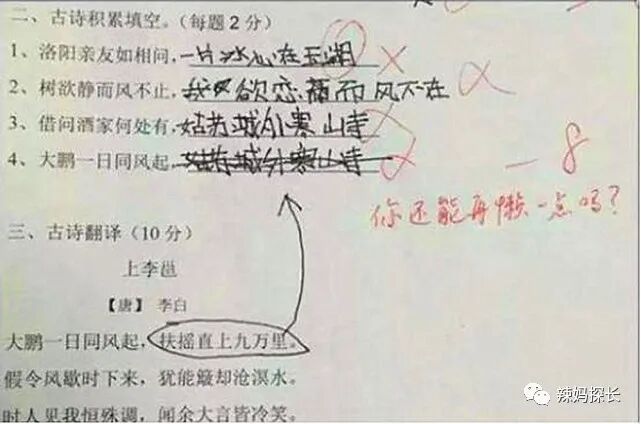 二、古诗积累填空。(每题2分)
1、洛阳亲友如相问,一片冰心在玉湖
2、树欲静而风不止,我欲恋而风不在
3、借问酒家何处有,姑苏城外寒山寺
4、大鹏一日同风起,姑苏城外寒山寺
-8
你还能再懒一点吗?
三、古诗翻译(10分)
上李邕
【唐】 李白
大鹏一日同风起,扶摇直上九万里。
假令风歇时下来,犹能簸却沧溟水。
时人见我恒殊调,闻余大言皆冷笑。
辣妈探长